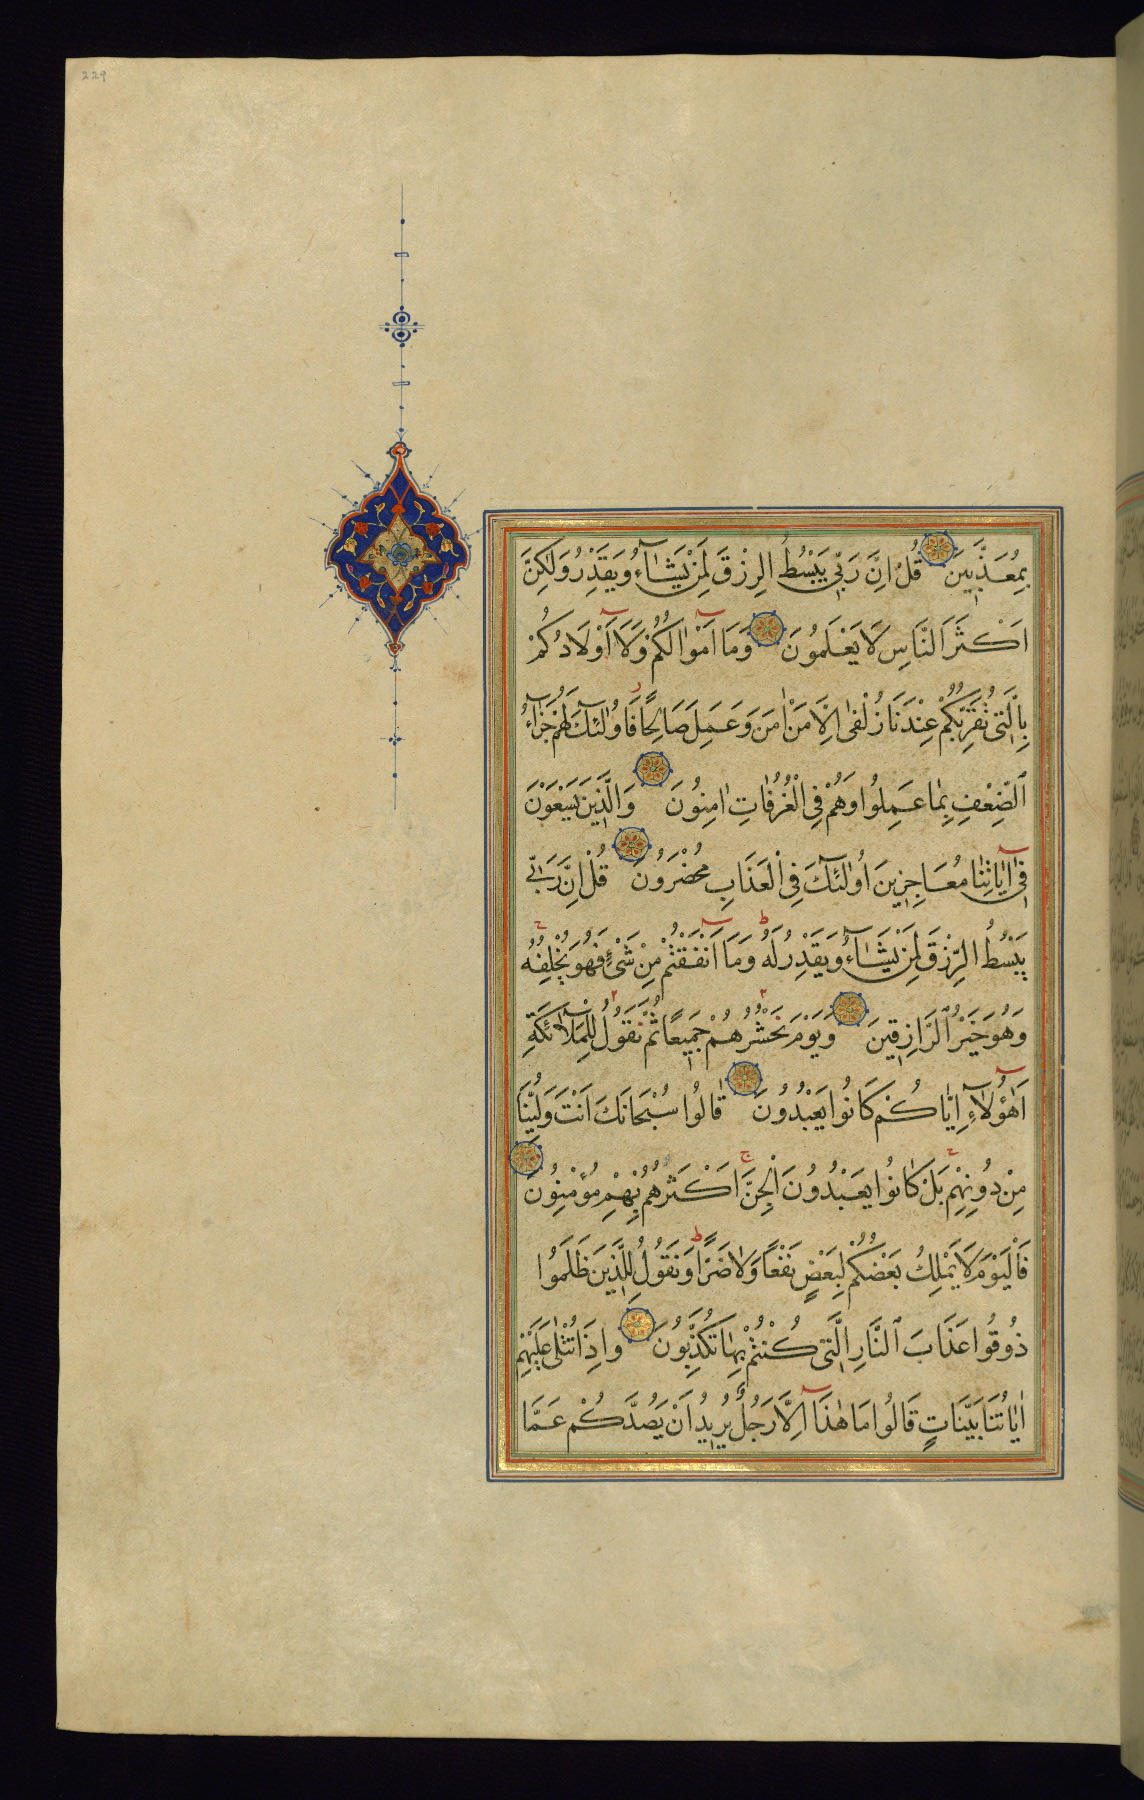 229
بِمُعَذَّبِينَ قُلْ اِنَّ رَبِّي يَبْسُطُ الرِزْقَ لِمَنْ يَشَآءُ وَيَقْدِرُ وَلٰكِنَّ
اَكْثَرَ النَّاسِ لَا يَعْلَمُونَ وَمَا اَمْوَالُكُمْ وَلَا اَوْلَادُكُمْ
بِالَّتِي تُقَرِّبُكُمْ عِنْدَنَا زُلْفٰى اِلَّا مَنْ اٰمَنَ وَعَمِلَ صَالِحًا فَاُولٰئِكَ لَهُمْ جَزَآءُ
الضِّعْفِ بِمَا عَمِلُوا وَهُمْ فِي الْغُرُفَاتِ اٰمِنُونَ وَالَّذِينَ يَسْعَوْنَ
فِي اٰيَاتِنَا مُعَاجِزِينَ اُولٰئِكَ فِي الْعَذَابِ مُحْضَرُونَ قُلْ اِنَّ رَبِّي
يَبْسُطُ الرِّزْقَ لِمَنْ يَشَآءُ وَيَقْدِرُ لَهُ وَمَا اَنْفَقْتُمْ مِنْ شَيْءٍ فَهُوَ يُخْلِفُهُ
وَهُوَ خَيْرُ الرَّازِقِينَ وَيَوْمَ نَحْشُرُهُمْ جَمِيعًا ثُمَّ نَقُولُ لِلْمَلَائِكَةِ
اَهٰؤُلَآءِ اِيَّاكُمْ كَانُوا يَعْبُدُونَ قَالُوا سُبْحَانَكَ اَنْتَ وَلِيُّنَا
مِنْ دُونِهِمْ بَلْ كَانُوا يَعْبُدُونَ الْجِنَّ اَكْثَرُهُمْ بِهِمْ مُؤْمِنُونَ
فَالْيَوْمَ لَا يَمْلِكُ بَعْضُكُمْ لِبَعْضٍ نَفْعًا وَلَا ضَرًّا وَنَقُولُ لِلَّذِينَ ظَلَمُوا
ذُوقُوا عَذَابَ النَّارِ الَّتِي كُنْتُمْ بِهَا تُكَذِّبُونَ وَاِذَا تُتْلٰى عَلَيْهِمْ
اٰيَاتُنَا بَيِّنَاتٍ قَالُوا مَا هٰذَا اِلَّا رَجُلٌ يُرِيدُ اَنْ يَصُدَّكُمْ عَمَّا